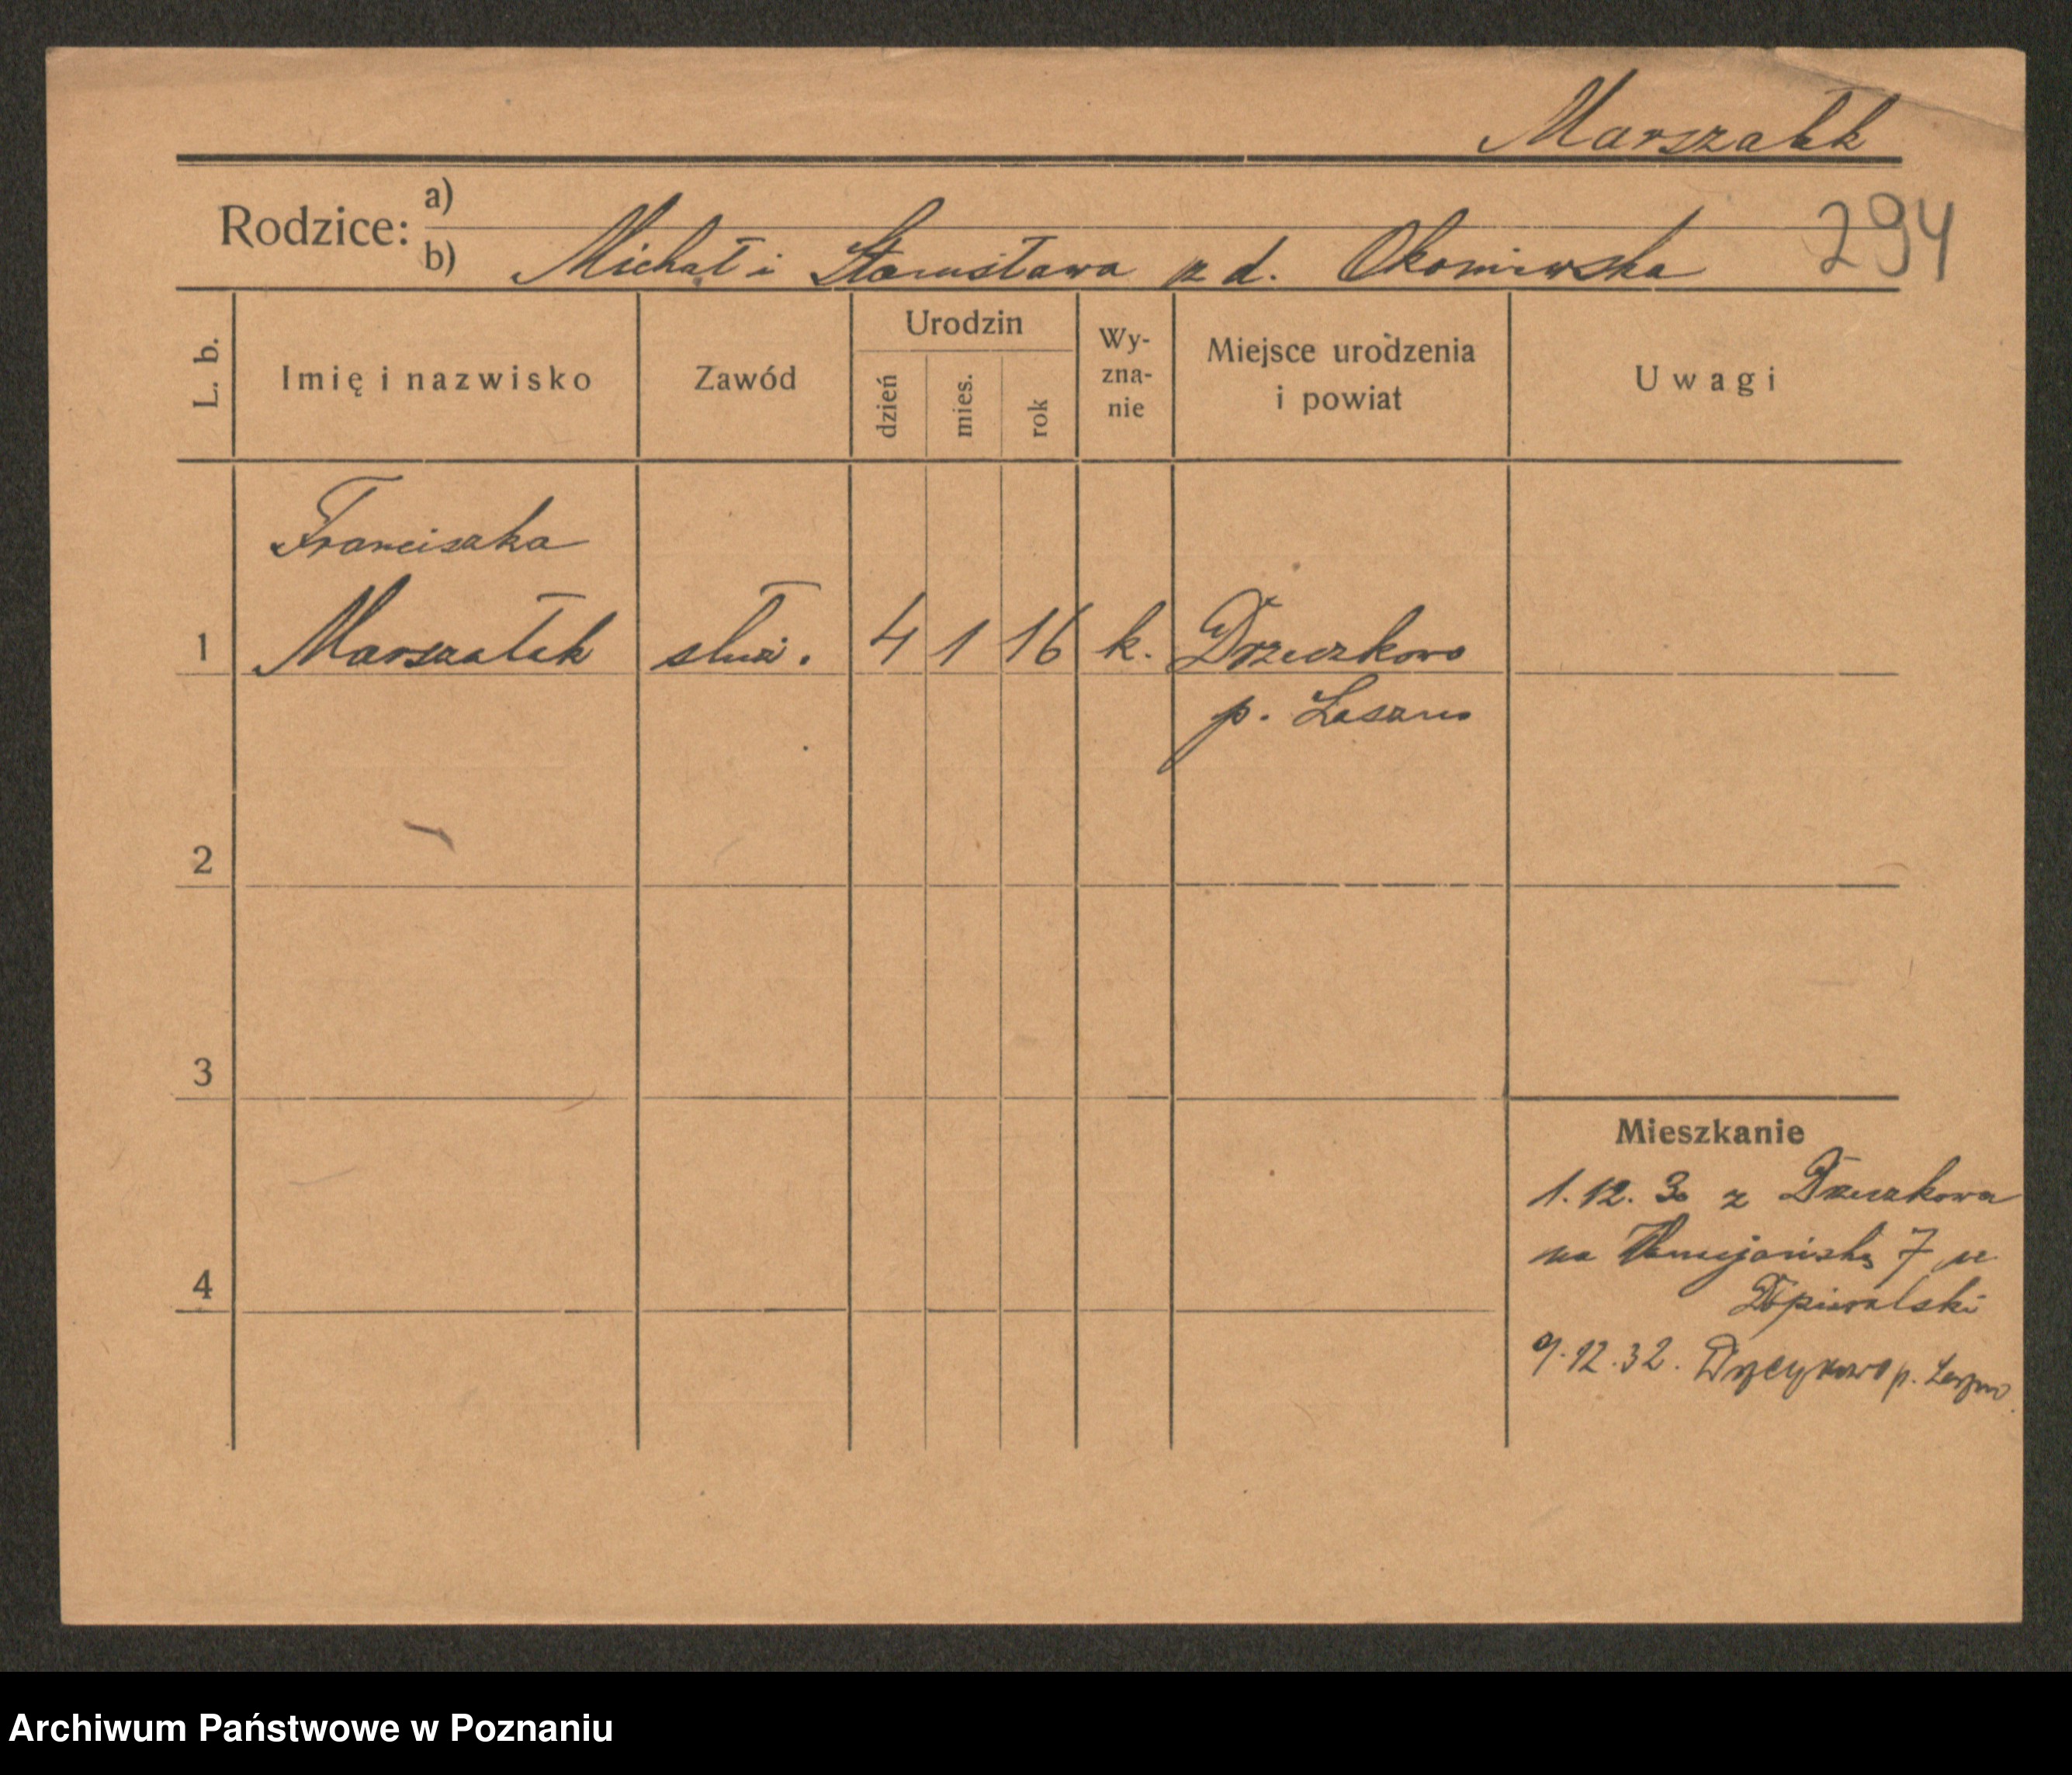 Marszałk
Rodzice: a)
b) Michał i Stanisława z d. Okoniewska
294
L. b.
Imię i nazwisko
Zawód
Urodzin
dzień
mies.
rok
Wy-
zna-
nie
Miejsce urodzenia
i powiat
Uwagi
Franciszka
1 Marszałek służ. 4 1 16 k. Drzeczkowo
p. Leszno
2
3
4
Mieszkanie
1. 12. 30 z Drzeczkowa
na 7 u
Opiewalski
9. 12. 32. p. Leszno.
Archiwum Państwowe w Poznaniu